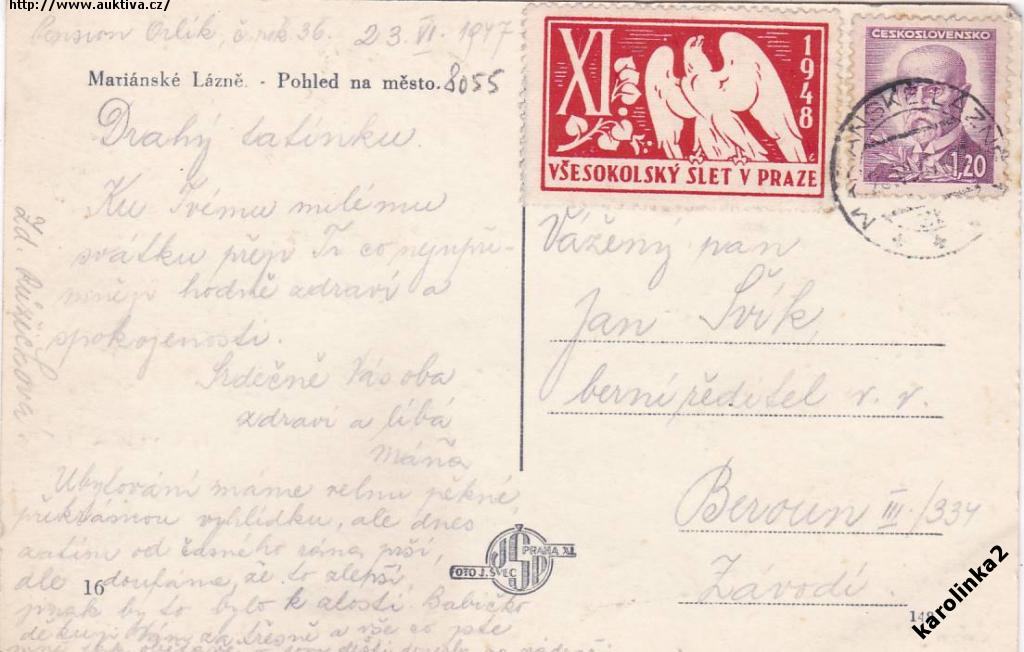 http://www.auktiva.cz/
Pension Orlík, č. 36. 23. VI. 1947
Mariánské Lázně. - Pohled na město. 8055
XI
1948
VŠESOKOLSKÝ SLET V PRAZE
ČESKOSLOVENSKO
1,20
MARIÁNSKÉ LÁZNĚ
Drahý tatínku.
Ku Tvému milému
svátku přeji Ti co nejupří-
mněji hodně zdraví a
spokojenosti.
Srdečně Vás oba
zdraví a líbá
Máňa
Zd. Růžičková.
Ubytování máme velmi pěkné,
překrásnou vyhlídku, ale dnes
zatím od časného rána prší,
ale doufáme, že to zlepší,
jinak by to bylo k zlosti. Babičko
děkuji Vám za třešně a vše co jste
Vážený pan
Jan Švík,
berní ředitel v. v.
Beroun III./334
Závodí.
FOTO J. ŠVEC
PRAHA XI.
JŠP
16
148
karolinka2